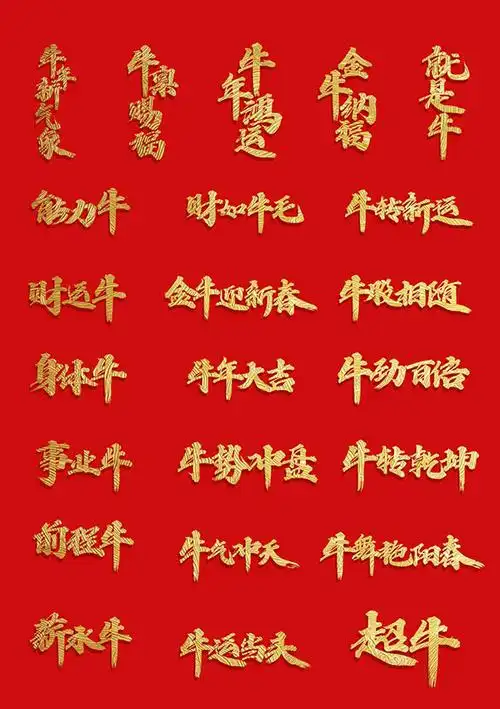 牛年新气象
牛赐福
牛年鸿运
金牛纳福
就是牛
能力牛
财如牛毛
牛转新运
财运牛
金牛迎新春
牛股相随
身体牛
牛年大吉
牛劲百倍
事业牛
牛势冲盘
牛转乾坤
前程牛
牛气冲天
牛舞艳阳春
薪水牛
牛运当头
超牛